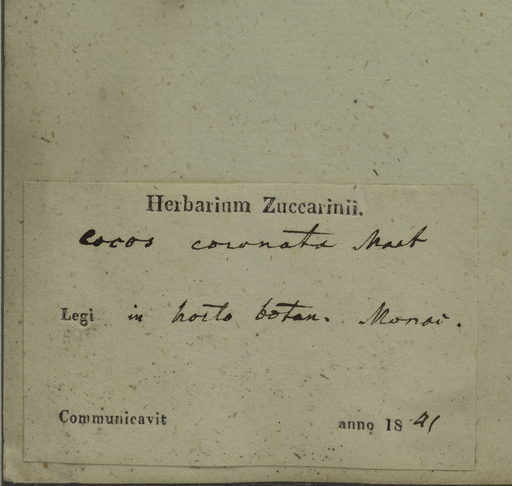 Herbarium Zuccarinii.
Cocos coronata Mart
Legi in horto botan. Monac.
Communicavit anno 1841